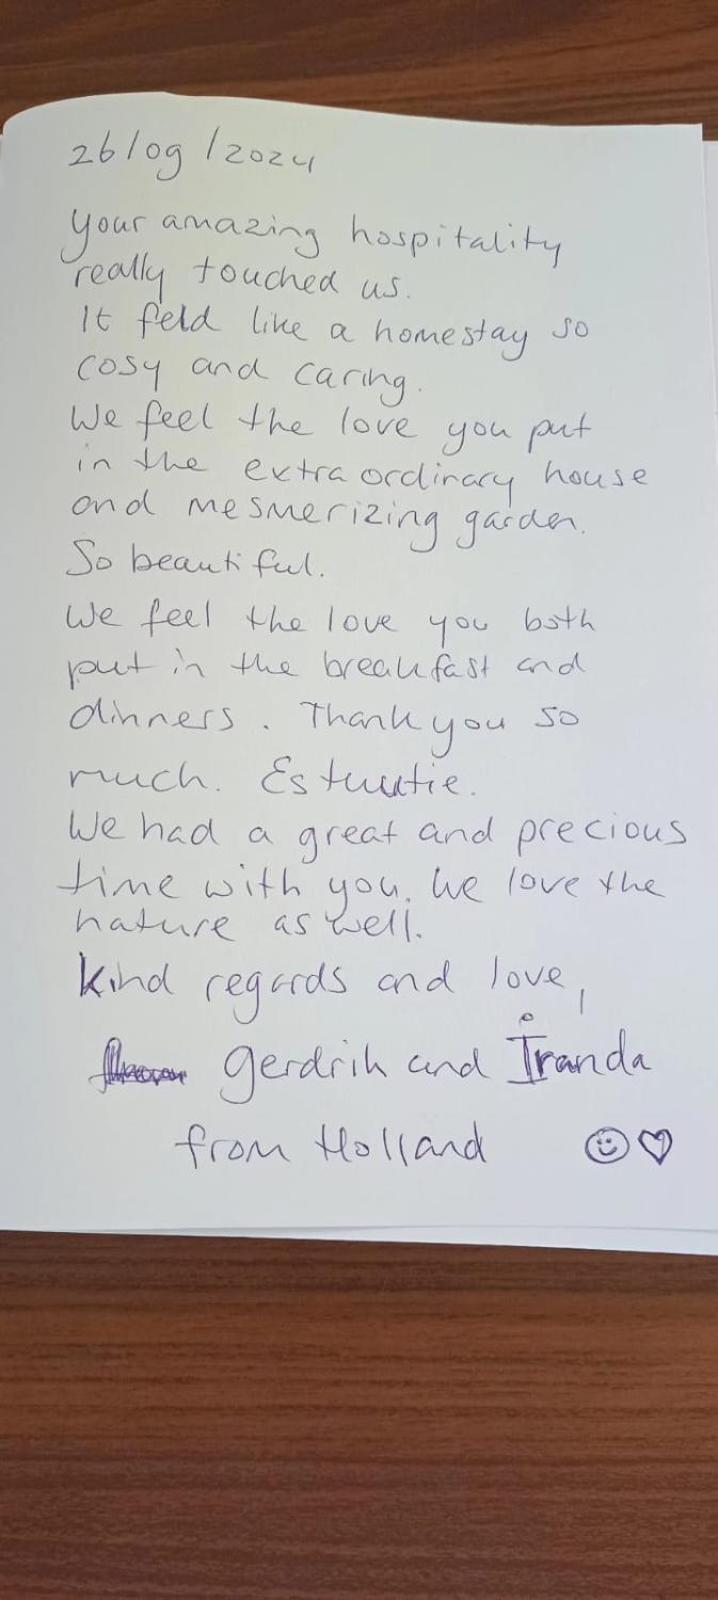 26/09/2024
Your amazing hospitality
really touched us.
It feld like a homestay so
cosy and caring.
We feel the love you put
in the extra ordinary house
and mesmerizing garden.
So beautiful.
We feel the love you both
put in the breakfast and
dinners. Thank you so
much.
We had a great and precious
time with you. We love the
nature as well.
Kind regards and love,
Gerdrik and Iranda
from Holland